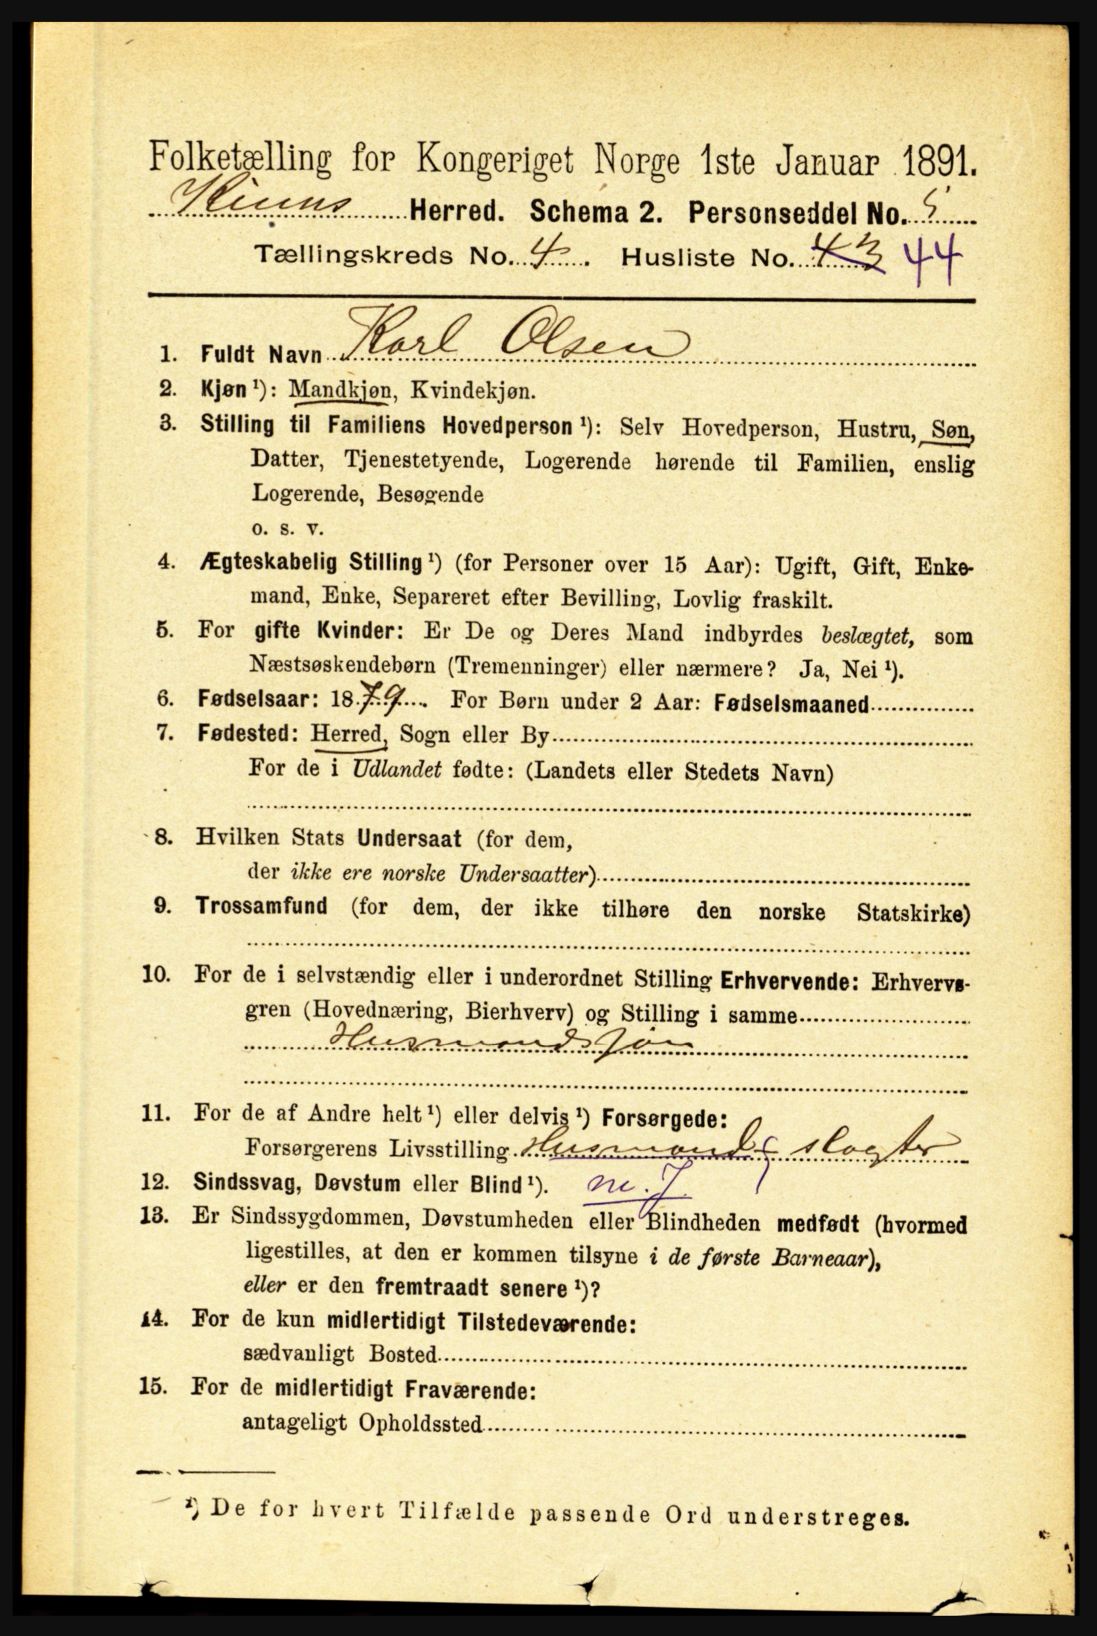 Folketælling for Kongeriget Norge 1ste Januar 1891.
Kinns Herred. Schema 2. Personseddel No. 5
Tællingskreds No. 4. Husliste No. 43 44
1. Fuldt Navn Karl Olsen
2. Kjøn ¹): Mandkjøn, Kvindekjøn.
3. Stilling til Familiens Hovedperson ¹): Selv Hovedperson, Hustru, Søn,
Datter, Tjenestetyende, Logerende hørende til Familien, enslig
Logerende, Besøgende
o. s. v.
4. Ægteskabelig Stilling ¹) (for Personer over 15 Aar): Ugift, Gift, Enke-
mand, Enke, Separeret efter Bevilling, Lovlig fraskilt.
5. For gifte Kvinder: Er De og Deres Mand indbyrdes beslægtet, som
Næstsøskendebørn (Tremenninger) eller nærmere? Ja, Nei ¹).
6. Fødselsaar: 1879. For Børn under 2 Aar: Fødselsmaaned
7. Fødested: Herred, Sogn eller By
For de i Udlandet fødte: (Landets eller Stedets Navn)
8. Hvilken Stats Undersaat (for dem,
der ikke ere norske Undersaatter)
9. Trossamfund (for dem, der ikke tilhøre den norske Statskirke)
10. For de i selvstændig eller i underordnet Stilling Erhvervende: Erhvervs-
gren (Hovednæring, Bierhverv) og Stilling i samme
Husmandssøn
11. For de af Andre helt ¹) eller delvis ¹) Forsørgede:
Forsørgerens Livsstilling Husmand slagter
12. Sindssvag, Døvstum eller Blind ¹). m. J.
13. Er Sindssygdommen, Døvstumheden eller Blindheden medfødt (hvormed
ligestilles, at den er kommen tilsyne i de første Barneaar),
eller er den fremtraadt senere ¹)?
14. For de kun midlertidigt Tilstedeværende:
sædvanligt Bosted
15. For de midlertidigt Fraværende:
antageligt Opholdssted
¹) De for hvert Tilfælde passende Ord understreges.